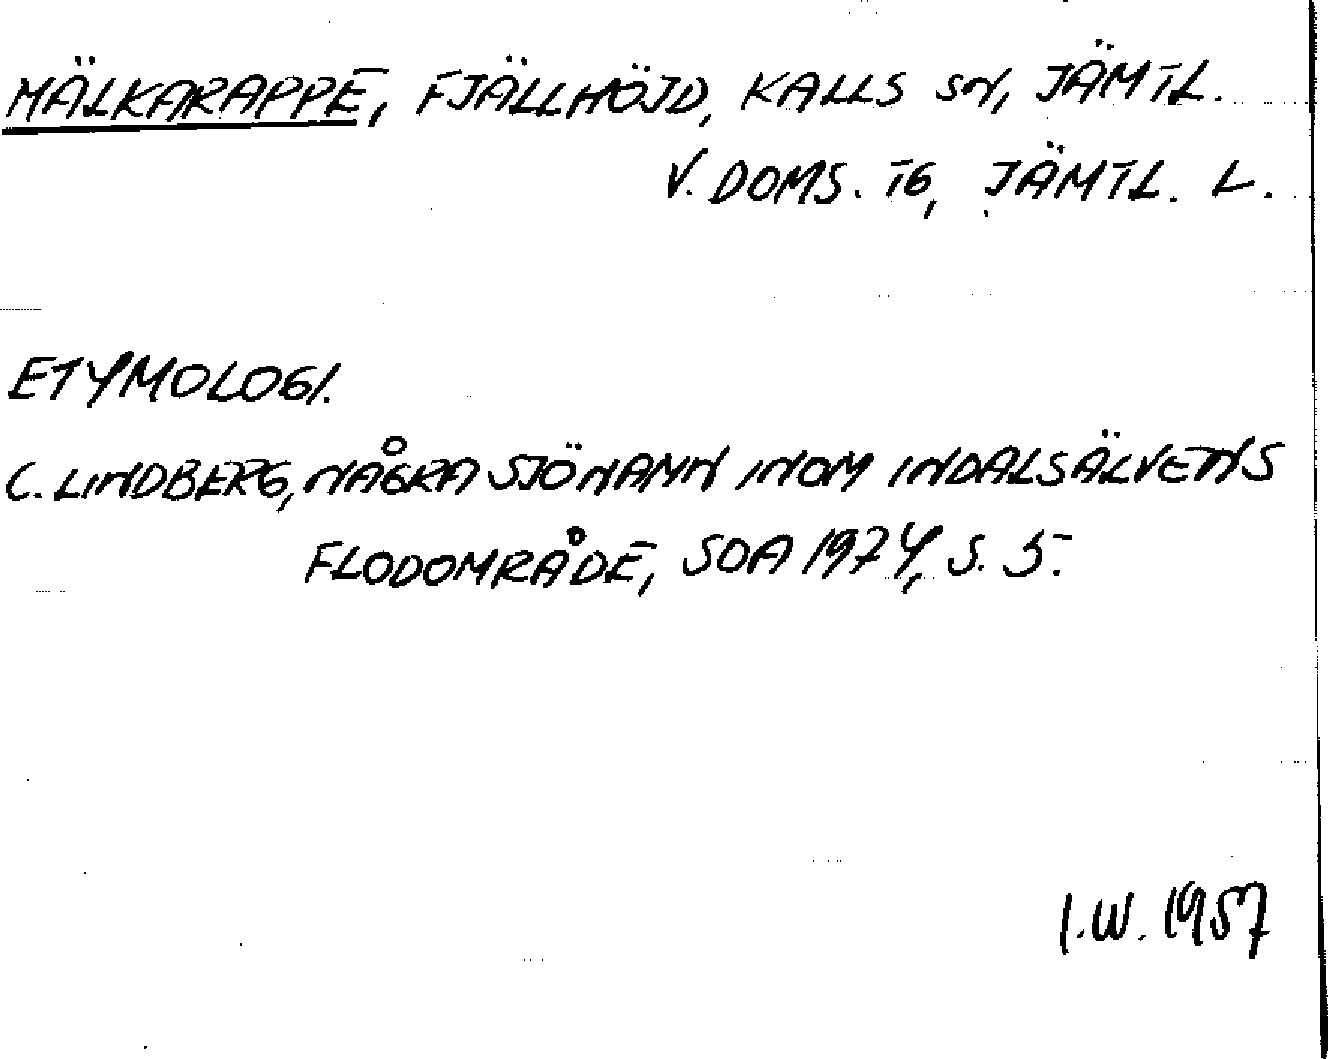 MÄLKARAPPE, FJÄLLHÖJD, KALLS SN, JÄMTL.
V. DOMS. TG, JÄMTL. L.
ETYMOLOGI.
C. LINDBERG, NÅGRA SJÖNAMN INOM INDALSÄLVENS
FLODOMRÅDE, SOA 1924, S. 5.
I.W. 1957